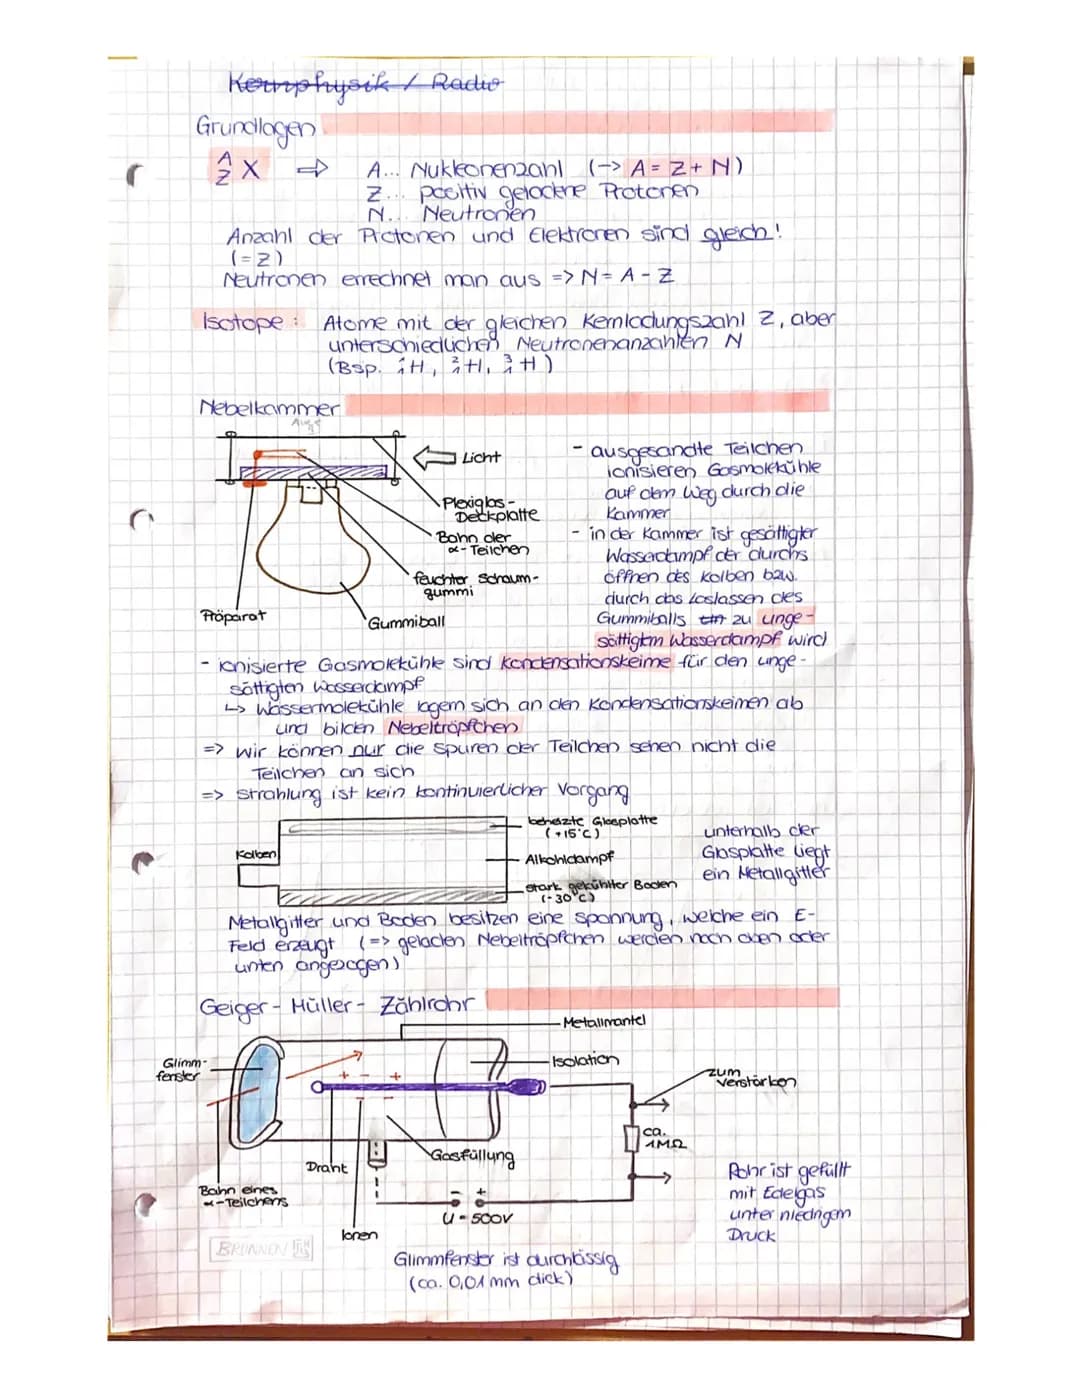 Kernphysik / Radio
Grundlagen
A
Z X ⇒ A... Nukleonenzahl (-> A = Z + N)
Z... positiv geladene Protonen
N... Neutronen
Anzahl der Protonen und Elektronen sind gleich!
(= Z)
Neutronen errechnet man aus => N = A - Z
Isotope: Atome mit der gleichen Kernladungszahl Z, aber
unterschiedlichen Neutronenanzahlen N
(Bsp. ¹₁H, ²₁H, ³₁H)
Nebelkammer
Licht
Plexiglas-
Deckplatte
Bahn der
α-Teilchen
feuchter Schaum-
gummi
Gummiball
Präparat
- ausgesandte Teilchen
ionisieren Gasmoleküle
auf dem Weg durch die
Kammer
- in der Kammer ist gesättigter
Wasserdampf der durchs
öffnen des Kolben bzw.
durch das loslassen des
Gummiballs zu unge-
sättigtem Wasserdampf wird
- ionisierte Gasmoleküle sind Kondensationskeime für den unge-
sättigten Wasserdampf
↳ Wassermoleküle lagern sich an den Kondensationskeimen ab
und bilden Nebeltröpfchen
=> wir können nur die Spuren der Teilchen sehen nicht die
Teilchen an sich
=> Strahlung ist kein kontinuierlicher Vorgang
Kolben
beheizte Glasplatte
(+15°C)
Alkoholdampf
stark gekühlter Boden
(-30°C)
unterhalb der
Glasplatte liegt
ein Metallgitter
Metallgitter und Boden besitzen eine Spannung, welche ein E-
Feld erzeugt (=> geladen Nebeltröpfchen werden nach oben oder
unten angezogen)
Geiger-Müller-Zählrohr
Metallmantel
Isolation
Glimm-
fenster
+ - +
- -
zum
Verstärken
ca.
1MΩ
Draht
Gasfüllung
Bahn eines
α-Teilchens
Ionen
- +
U = 500V
Rohr ist gefüllt
mit Edelgas
unter niedrigem
Druck
BRUNNEN
Glimmfenster ist durchlässig
(ca. 0,01 mm dick)